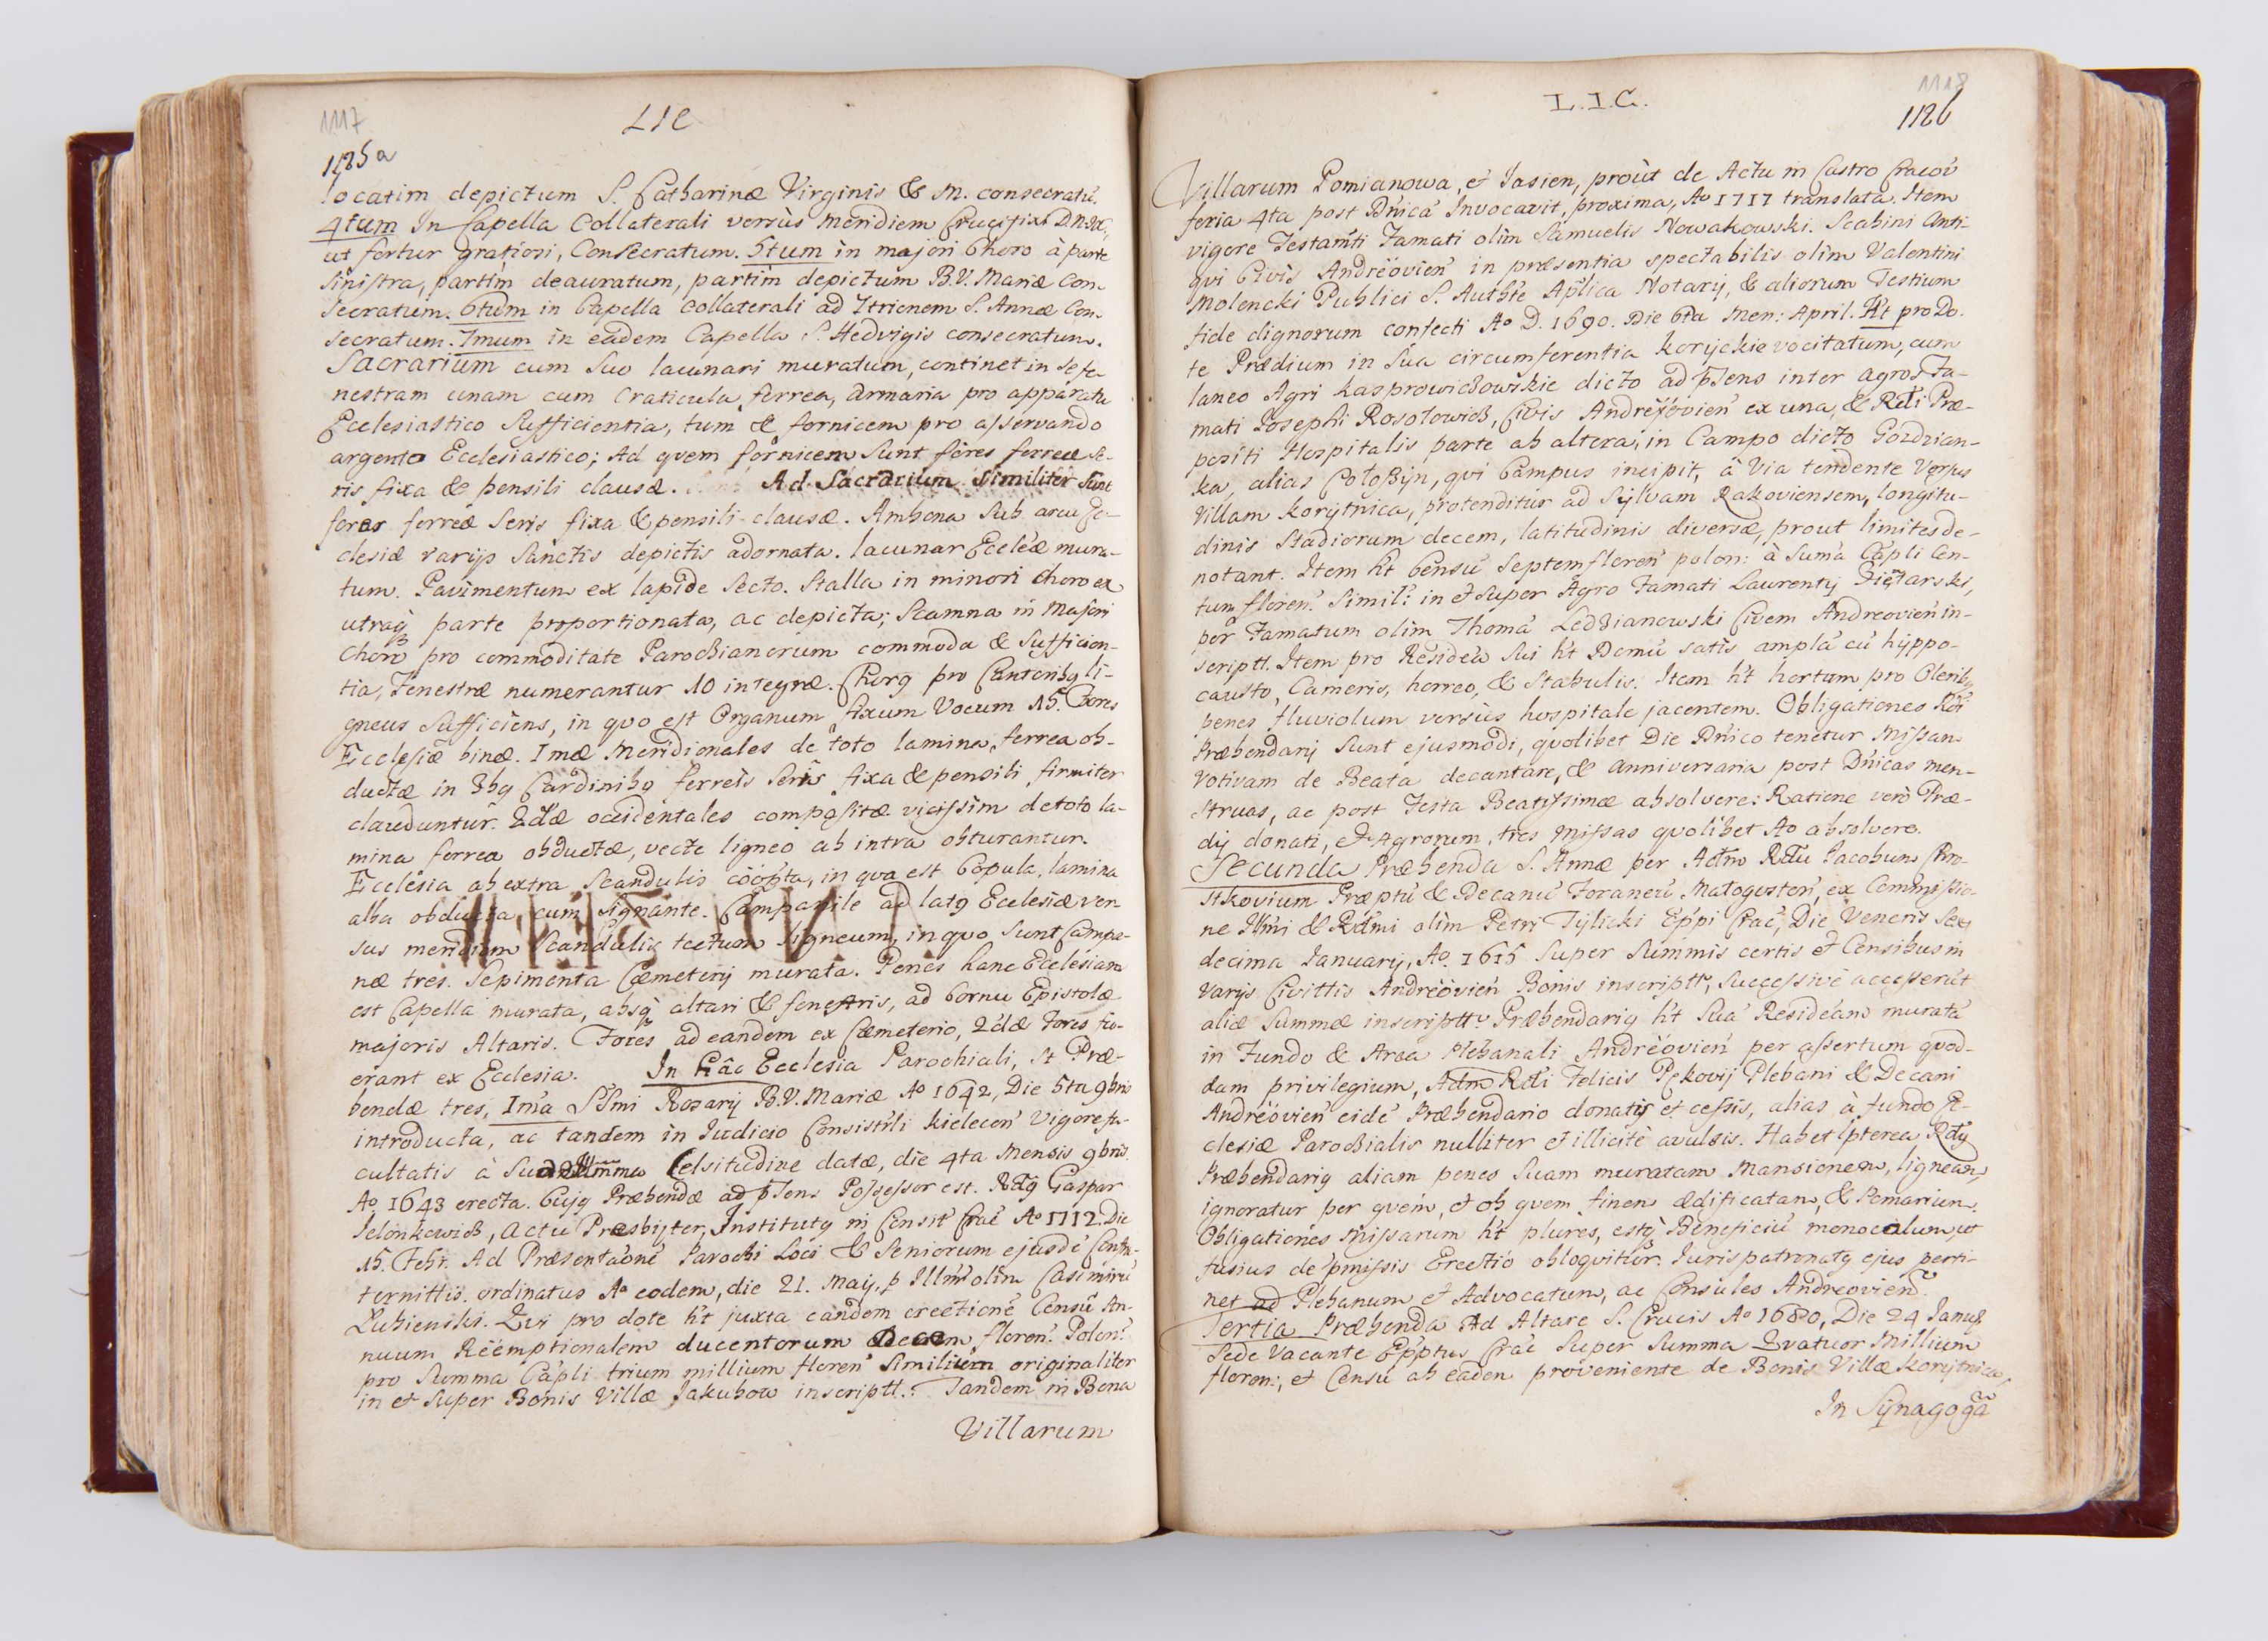 1117
LIC
1125a
locatim depictum S. Catharinæ Virginis & M. consecratũ.
4tum In Capella Collaterali versùs Meridiem Crucifixi DNIX,
ut fertur gratiosi, Consecratum. 5tum in majori Choro à parte
sinistra, partim deauratum, partim depictum B.V. Mariæ Con
secratum. 6tum in Capella Collaterali ad 7trionem S. Annæ Con-
secratum. 7mum in eadem Capella S. Hedvigis consecratum.
Sacrarium cum suo lacunari muratum, continet in se fe-
nestram unam cum craticula ferrea, armaria pro apparatu
Ecclesiastico sufficientia, tum & fornicem pro asservando
argento Ecclesiastico; Ad quem fornicem sunt fores ferreæ se-
ris fixa & pensili clausæ. Ad Sacrarium similiter sunt
fores ferreæ seris fixa & pensili clausæ. Ambona sub arcu Ec-
clesiæ varijs Sanctis depictis adornata. Lacunar Eccl'æ mura-
tum. Pavimentum ex lapide secto. Stalla in minori choro ex
utraq3 parte proportionata, ac depicta; Scamna in Majori
Choro pro commoditate Parochianorum commoda & sufficien-
tia, Fenestræ numerantur 10 integræ. Chorg pro Cantoribg li-
gneus sufficiens, in quo est Organum fixum Vocum 15. Fores
Ecclesiæ binæ. Imæ Meridionales de toto lamina ferrea ob-
ductæ in 3bg Cardinibg ferreis seris fixa & pensili firmiter
clauduntur. 2dæ occidentales compositæ vicissim de toto la-
mina ferrea obductæ, vecte ligneo ab intra obturantur.
Ecclesia ab extra scandulis cooperta, in qua est Copula, lamina
alba obducta, cum signante. Campanile ad latg Ecclesiæ ver
sus meridiem scandulis tectum ligneum, in quo sunt Campa-
næ tres. Sepimenta Cœmeterij murata. Penes hanc Ecclesiam
est Capella murata, absq3 altari & fenestris, ad Cornu Epistolæ
majoris Altaris. Fores ad eandem ex Cœmeterio, 2dæ Fores fu-
erant ex Ecclesia. In hâc Ecclesia Parochiali, st Præ-
bendæ tres, Ima SSmi Rosarij B.V. Mariæ Ao 1642, Die 5ta 9bris
introducta, ac tandem in Iudicio Consist'li kielecen' vigore fa-
cultatis à sua Celsitudine datæ, die 4ta Mensis 9bris
Ao 1643 erecta. Cujg Præbendæ ad p̃sens Possessor est. Rdg Gaspar
Jelonkowicz, Actu Presbijter, Institutg in Consist' Crac' Ao 1712. Die
15. Febr. Ad Præsentaoné Parochi Loci & Seniorum ejusdé Confra-
ternittis. ordinatus Ao eodem, die 21. Maij. p Illm̃ olim Casimirũ
Łubienski. Qui pro dote h't juxta eandem erectioné Censũ An-
nuum Reemptionalem ducentorum decem floren': Polon':
pro summa Cap'li trium millium floren' similium originaliter
in et super Bonis Villæ Jakubow inscriptt.: Tandem in Bona
Villarum
1118
L.I.C.
1126
Villarum Pomianowa, et Jasien, proùt de Actu in Castro Cracov'
feria 4ta post Dn'icá Invocavit, proxima, Ao 1717 translata. Item
vigore Testam'ti Famati olim Samuelis Nowakowski. Scabini Anti-
qui Civis Andreovien' in præsentia spectabilis olim Valentini
Molencki Publici S. Auth'te Ap'lica Notarij, & aliorum Testium
fide dignorum confecti Ao D. 1690. Die 6ta Men: April. H't pro Do-
te Prædium in sua circumferentia korijckie vocitatum, cum
laneo Agri kasprowiczowskie dicto ad p̃sens inter agros Fa-
mati Josephi Rosołowicz, Civis Andreovien' ex una, & Rdi Præ-
positi Hospitalis parte ab altera, in Campo dicto Gozdzian-
ka, alias Cołoszijn, qui Campus incipit, à Via tendente Versus
Villam korijtnica, protenditur ad Sijlvam Rakoviensem, longitu-
dinis Stadiorum decem, latitudinis diversæ, prout limites de-
notant. Item h't Censũ Septem floren' polon: à Suma Cap'li Cen-
tum floren': simil: in et super Agro Famati Laurentij Zietarski,
per Famatum olim Thomá Ledzianowski Civem Andreovien' in-
scriptt. Item pro Residéa sui h't Domũ satis amplá cũ hijppo-
causto, Cameris, horreo, & stabulis. Item h't hortum pro Olerib9
penes fluviolum versùs hospitale jacentem. Obligationes Rdi
Præbendarij sunt ejusmodi, quolibet Die Dn'ico tenetur Missam
votivam de Beata decantare, & anniversaria post Dn'icas men-
struas, ac post Festa Beatissimæ absolvere: Ratione verò Præ-
dij donati, et Agrorum, tres Missas quolibet Ao absolvere.
Secunda Præbenda S. Annæ per Adm̃ Rdũ Jacobum Chro-
stkovium Præptũ & Decanũ Foraneũ Małogosten', ex Commissio-
ne Illmi & Rdmi olim Petri Tijlicki Ep'pi Crac', Die Veneris Sex
decima Ianuarij, Ao. 1615 super summis certis et Censibus in
varijs Civittis Andreovien' Bonis inscriptt., successivè accesserũt
aliæ summæ inscriptt. Præbendarig h't suá Residéam muratá
in Fundo & Area Plebanali Andreovien' per assertum quod-
dam privilegium, Adm̃ Rdi Felicis Pękovij Plebani & Decani
Andreovien' eidé Præbendario donatis et cessis, alias à fundo Ec-
clesiæ Parochialis nulliter et illicitè avulsis. Habet ipterea Rdg
Præbendarig aliam penes suam muratam Mansionem, ligneam,
ignoratur per quem, et ob quem finem ædificatam, & Pomarium.
Obligationes Missarum h't plures, estq3 Beneficiũ monoculum, ut
fusius de p'missis Erectio obloquitur. Iurispatronatg ejus perti-
net ad Plebanum et Advocatum, ac Consules Andreovien'.
Tertia Præbenda Ad Altare S. Crucis Ao 1680, Die 24 Ianuar
Sede Vacante Ep'ptus Crac' super summa Quatuor Millium
floren:, et Censũ ab eadem proveniente de Bonis Villæ korijtnica,
In Sÿnagogã